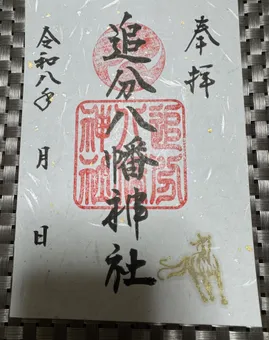 奉拝
追分八幡神社
追分八幡神社
令和八年 月 日